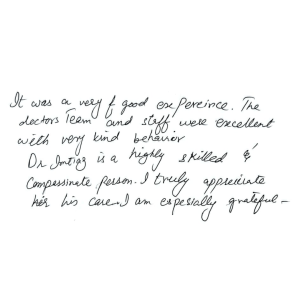 It was a very f good expereince. The
doctors Team and staff were excellent
with very kind behavior
Dr. Imtiaz is a highly skilled &
Compassinate person. I truly appreiciate
his his care. I am espesially grateful -